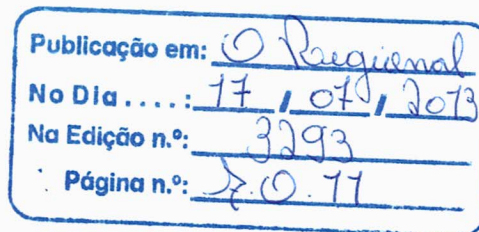 Publicação em: O Regional
No Dia....: 17 / 07 / 2013
Na Edição n.º: 3293
Página n.º: 11